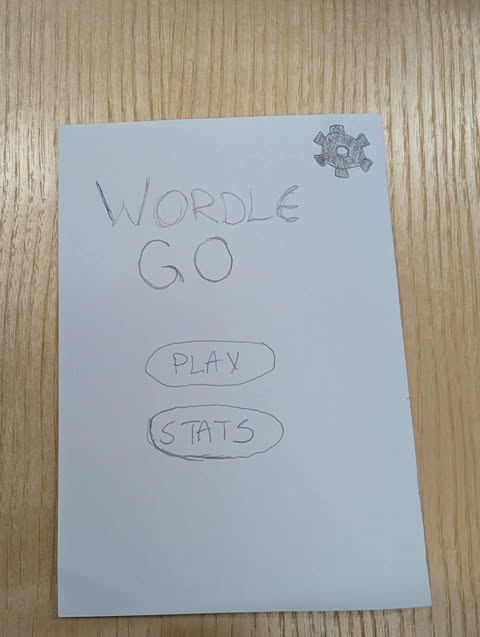 WORDLE
GO
PLAY
STATS